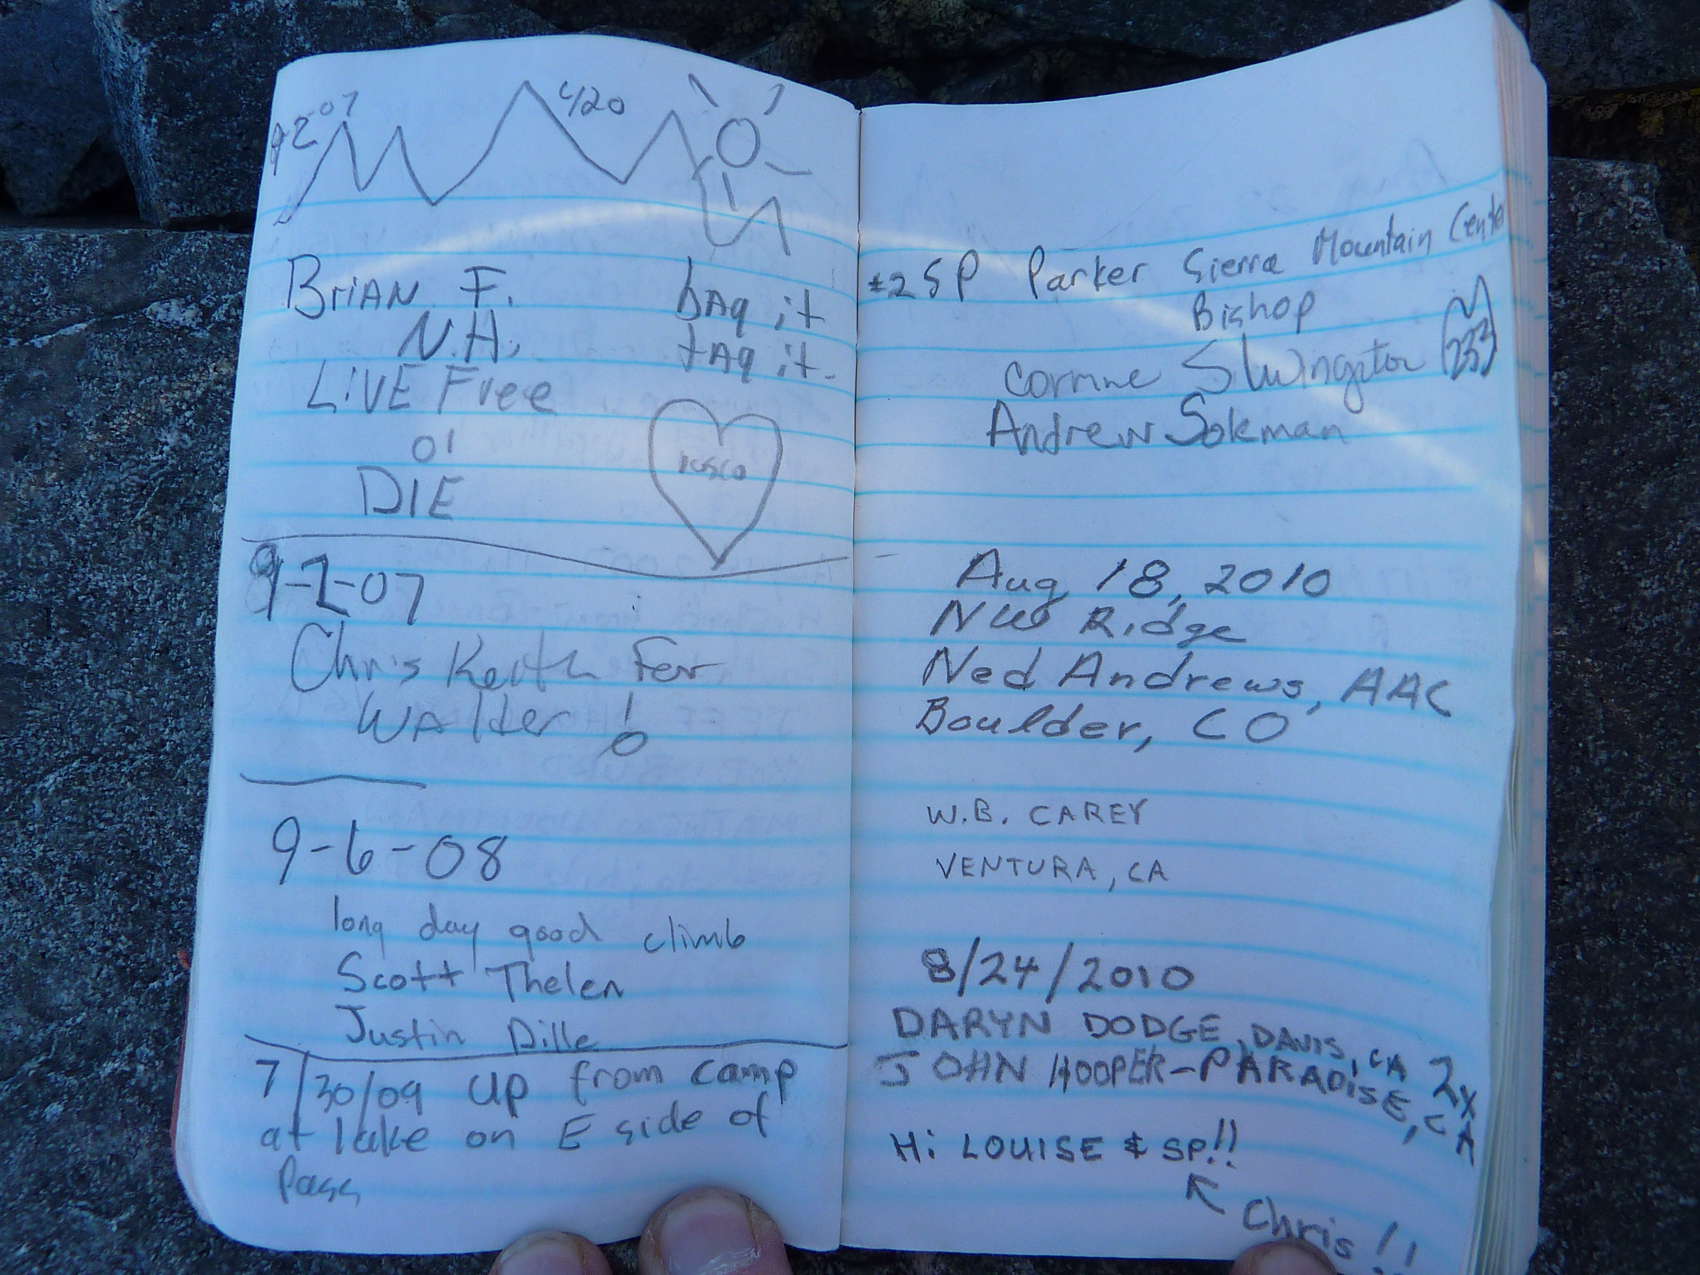 9-2-07
4/20
BriAN F.
N.H.
LiVE Free
or
DIE
bAg it
tAg it.
9-2-07
Chris Keith Fer
WAlter!
9-6-08
long day good climb
Scott Thelen
Justin Dille
7/30/09 up from camp
at lake on E side of
Pass
#2 SP Parker Sierra Mountain Center
Bishop
Corinne
Andrew Sokman
Aug 18, 2010
NW Ridge
Ned Andrews, AAC
Boulder, CO
W.B. CAREY
VENTURA, CA
8/24/2010
DARYN DODGE, DAVIS, CA 2x
JOHN HOOPER-PARADISE, CA
Hi LOUISE & SP!!
Chris!!